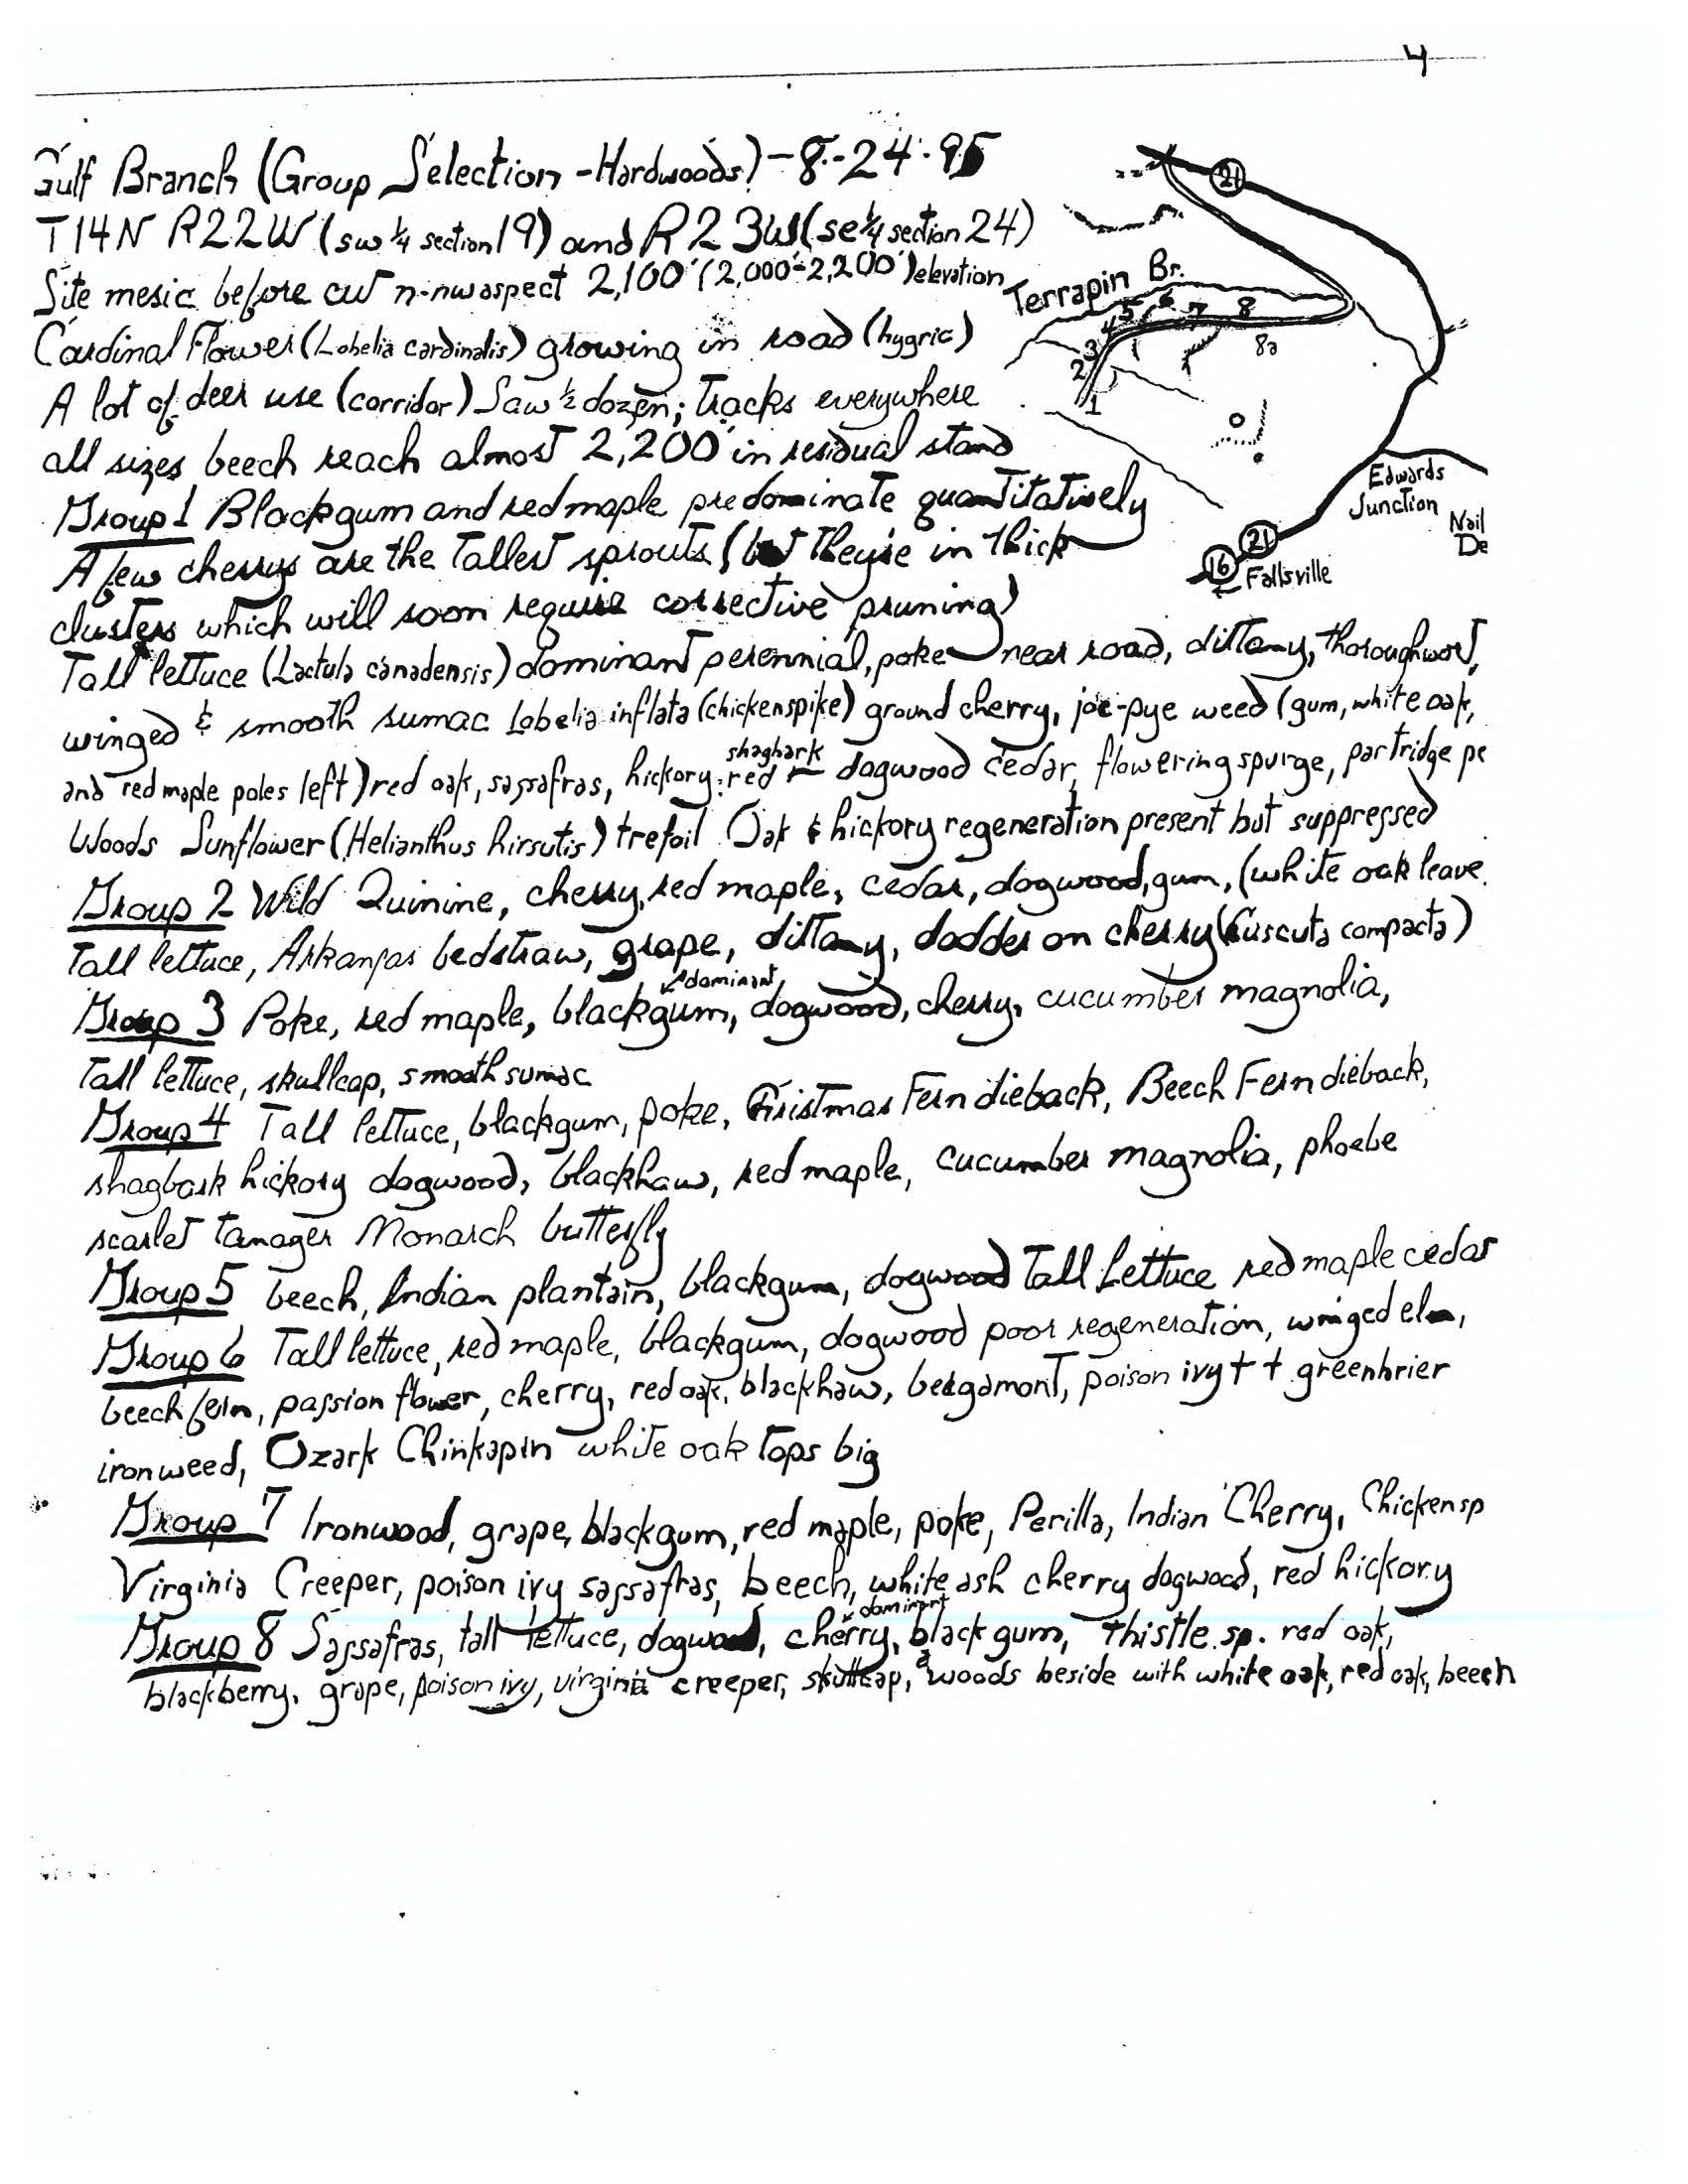 4
Gulf Branch (Group Selection - Hardwoods) - 8-24-95
T14N R22W (sw ¼ section 19) and R23W (se ¼ section 24)
Site mesic before cut n-nw aspect 2,100' (2,000'-2,200') elevation
Cardinal Flower (Lobelia cardinalis) growing in road (hygric)
A lot of deer use (corridor) Saw ½ dozen; tracks everywhere
all sizes beech reach almost 2,200' in residual stand
Group 1 Blackgum and red maple predominate quantitatively
A few cherrys are the tallest sprouts (but they're in thick
clusters which will soon require corrective pruning)
Tall lettuce (Lactula canadensis) dominant perennial, poke near road, dittany, thoroughwort,
winged & smooth sumac Lobelia inflata (chickenspike) ground cherry, joe-pye weed (gum, white oak,
and red maple poles left) red oak, sassafras, hickory: red shagbark dogwood cedar, flowering spurge, partridge pe
Woods Sunflower (Helianthus hirsutis) trefoil Oak & hickory regeneration present but suppressed
Group 2 Wild Quinine, cherry, red maple, cedar, dogwood, gum, (white oak leave
Tall lettuce, Arkansas bedstraw, grape, dittany, dodder on cherry (Cuscuta compacta)
Group 3 Poke, red maple, blackgum, dogwood, cherry, cucumber magnolia,
↙dominant
Tall lettuce, skullcap, smooth sumac
Group 4 Tall lettuce, blackgum, poke, Christmas Fern dieback, Beech Fern dieback,
shagbark hickory dogwood, blackhaw, red maple, cucumber magnolia, phoebe
scarlet tanager Monarch butterfly
Group 5 beech, Indian plantain, blackgum, dogwood Tall Lettuce red maple cedar
Group 6 Tall lettuce, red maple, blackgum, dogwood poor regeneration, winged elm,
beech fern, passion flower, cherry, red oak, blackhaw, bergamont, poison ivy + + greenbrier
ironweed, Ozark Chinkapin white oak tops big
Group 7 Ironwood, grape, blackgum, red maple, poke, Perilla, Indian Cherry, Chickensp
Virginia Creeper, poison ivy sassafras, beech, white ash cherry dogwood, red hickory
Group 8 Sassafras, tall lettuce, dogwood, cherry, black gum, thistle sp. red oak,
↙dominant
blackberry, grape, poison ivy, virginia creeper, skullcap, woods beside with white oak, red oak, beech
21
Terrapin Br.
1 2 3 4 5 6 7 8
8a
Edwards
Junction
Nail
De
21
16
Fallsville